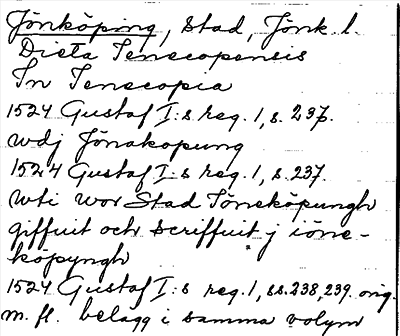 Jönköping, stad, Jönk. l.
Dieta Jenecopensis
In Jenecopia
1524 Gustaf I:s reg. 1, s. 237.
wdj Jönakopung
1524 Gustaf I:s reg. 1, s. 237.
wti wor Stad Jöneköpungh
giffuit och scriffuit j iöne-
köpyngh
1524 Gustaf I:s reg. 1, ss. 238, 239. orig.
m. fl. belägg i samma volym